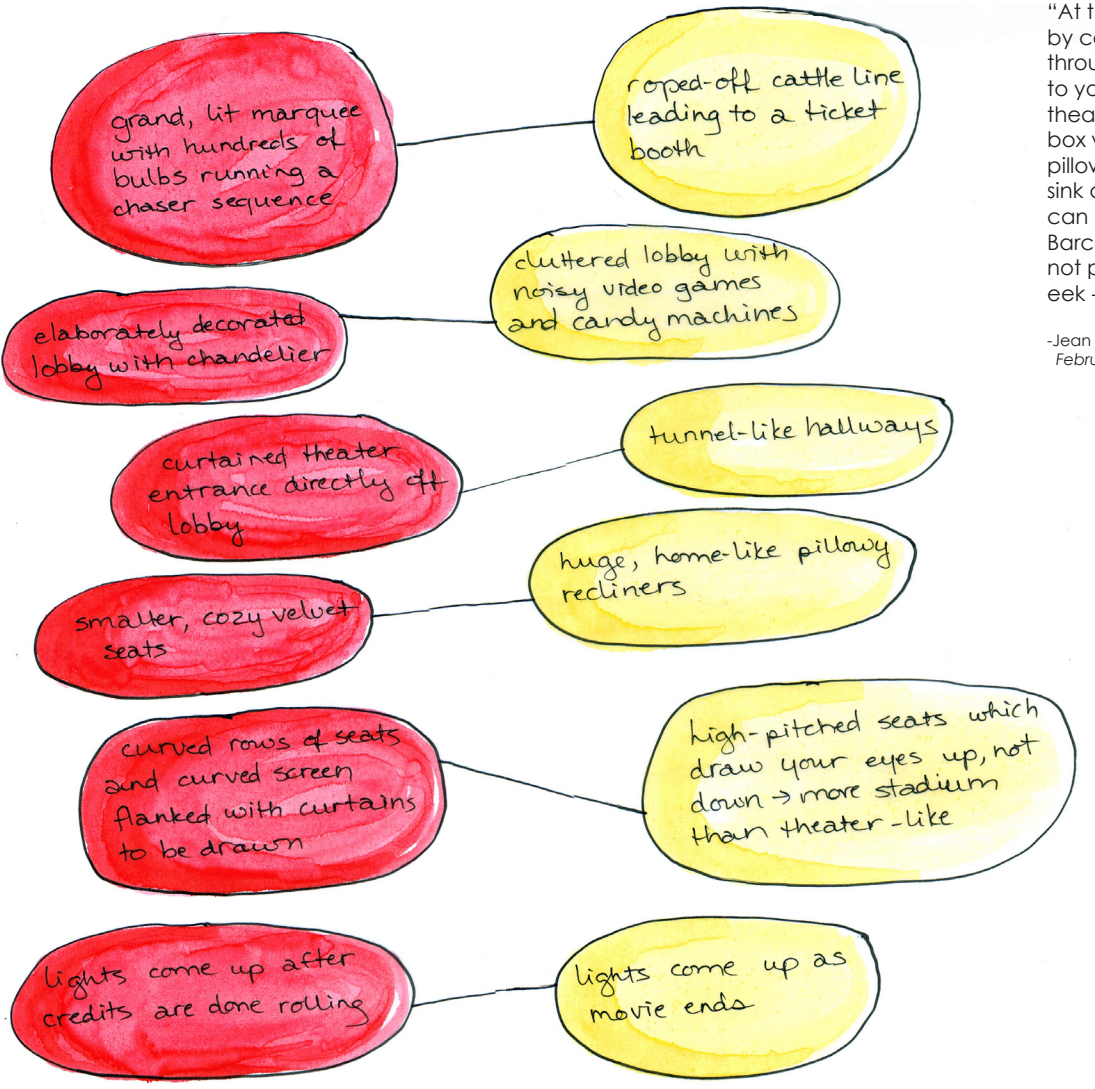 grand, lit marquee
with hundreds of
bulbs running a
chaser sequence
roped-off cattle line
leading to a ticket
booth
elaborately decorated
lobby with chandelier
cluttered lobby with
noisy video games
and candy machines
curtained theater
entrance directly off
lobby
tunnel-like hallways
smaller, cozy velvet
seats
huge, home-like pillowy
recliners
curved rows of seats
and curved screen
flanked with curtains
to be drawn
high-pitched seats which
draw your eyes up, not
down → more stadium
than theater-like
lights come up after
credits are done rolling
lights come up as
movie ends
"At t
by co
throu
to yo
thea
box v
pillov
sink c
can
Barc
not p
eek -
-Jean
Febru